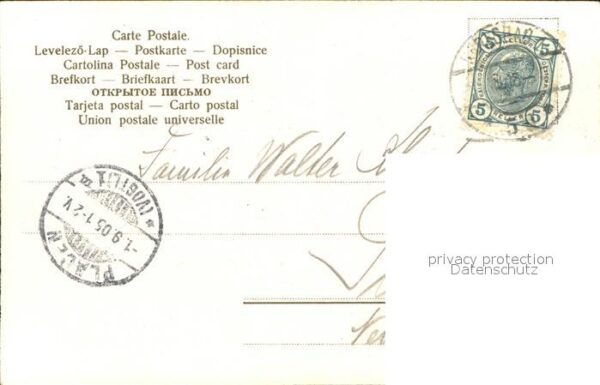 Carte Postale.
Levelező-Lap — Postkarte — Dopisnice
Cartolina Postale — Post card
Brefkort — Briefkaart — Brevkort
ОТКРЫТОЕ ПИСЬМО
Tarjeta postal — Carto postal
Union postale universelle
5 5
5 5
Familie Walter
PLAUEN
(VOGTL) 1
-1.9.05.1-2V.
privacy protection
Datenschutz